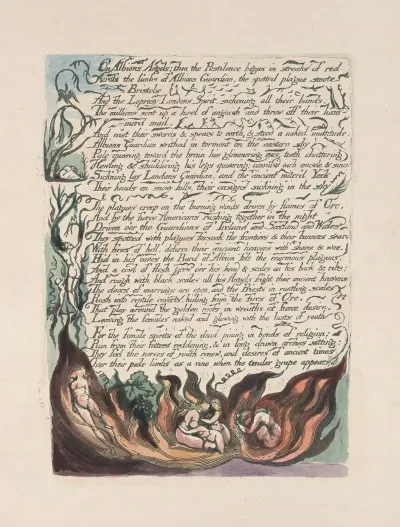 On Albions Angels; then the Pestilence began in streaks of red
Across the limbs of Albions Guardian, the spotted plague smote
Bristols
And the Leprosy Londons Spirit, sickening all their bands:
The millions sent up a howl of anguish and threw off their ham-
-merd mail,
And cast their swords & spears to earth, & stood a naked multitude.
Albions Guardian writhed in torment on the eastern sky
Pale quivring toward the brain his glimmering eyes, teeth chattering
Howling & shuddering his legs quivering; convuls'd each muscle & sinew
Sick'ning lay Londons Guardian, and the ancient miter'd York
Their heads on snowy hills, their ensigns sick'ning in the sky
The plagues creep on the burning winds driven by flames of Orc,
And by the fierce Americans rushing together in the night
Driven o'er the Guardians of Ireland and Scotland and Wales
They spotted with plagues forsook the frontiers & their banners seard
With fires of hell, deform their ancient heavens with shame & woe.
Hid in his caves the Bard of Albion felt the enormous plagues.
And a cowl of flesh grew o'er his head & scales on his back & ribs;
And rough with black scales all his Angels fright their ancient heavens
The doors of marriage are open, and the Priests in rustling scales
Rush into reptile coverts, hiding from the fires of Orc,
That play around the golden roofs in wreaths of fierce desire,
Leaving the females naked and glowing with the lusts of youth
For the female spirits of the dead pining in bonds of religion;
Run from their fetters reddening, & in long drawn arches sitting:
They feel the nerves of youth renew, and desires of ancient times,
Over their pale limbs as a vine when the tender grape appears